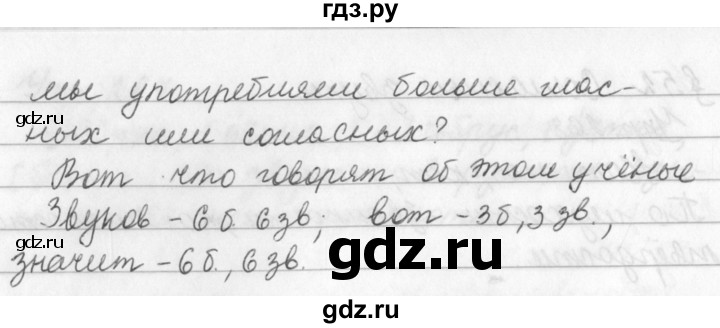 гдз.ру
мы употребляем больше глас-
ных или согласных?
Вот что говорят об этом учёные
Звуков - 6 б. 6 зв; вот - 3 б, 3 зв.,
значит - 6 б., 6 зв.
gdz.ru
gdz.ru